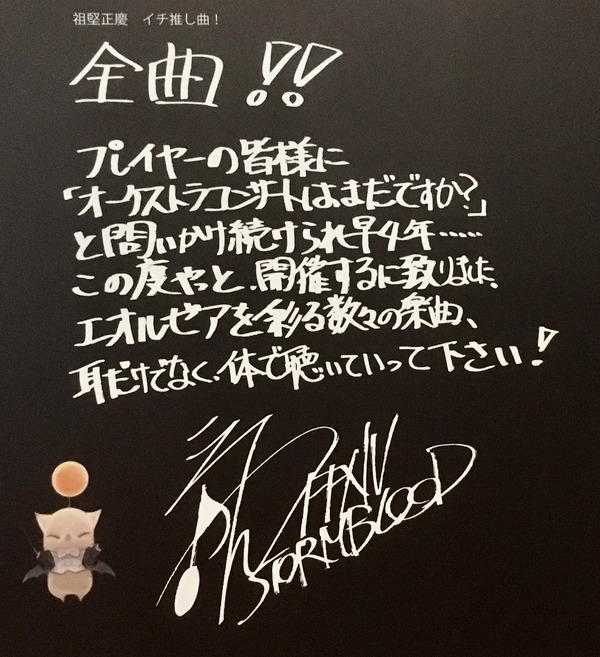 祖堅正慶 イチ推し曲！
全曲!!
プレイヤーの皆様に
「オーケストラコンサートはまだですか?」
と問いかけ続けられ早4年……
この度やっと、開催するに致りました。
エオルゼアを彩る数々の楽曲、
耳だけでなく、体で聴いていって下さい!
FFXIV
STORMBLOOD